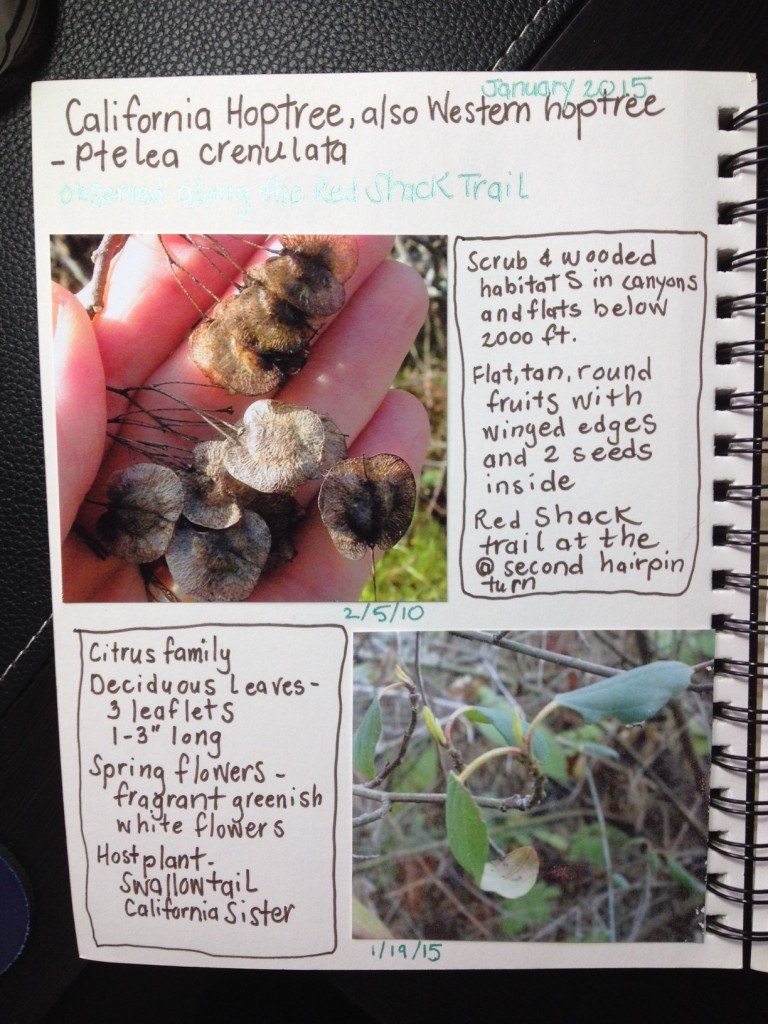 January 2015
California Hoptree, also Western hoptree
- Ptelea crenulata
Observed along the Red Shack Trail
Scrub & wooded
habitats in canyons
and flats below
2000 ft.
Flat, tan, round
fruits with
winged edges
and 2 seeds
inside
Red Shack
trail at the
@ second hairpin
turn
2/5/10
Citrus family
Deciduous leaves-
3 leaflets
1-3" long
Spring flowers -
fragrant greenish
white flowers
Host plant-
Swallowtail
California Sister
1/19/15